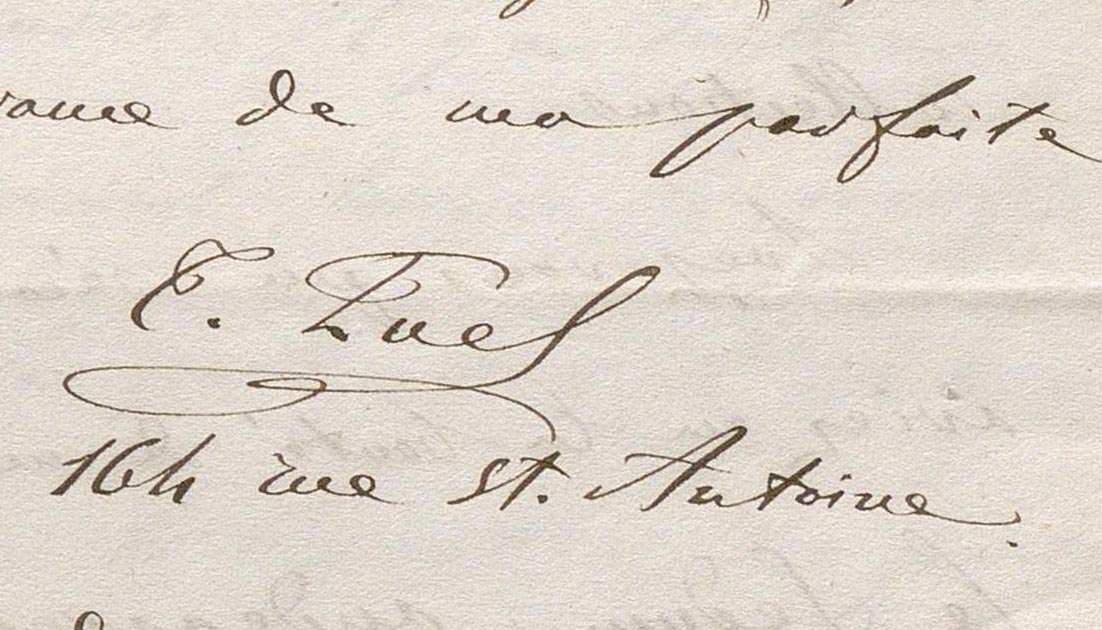 de ma parfaite
E. Puel
164 rue St. Antoine.